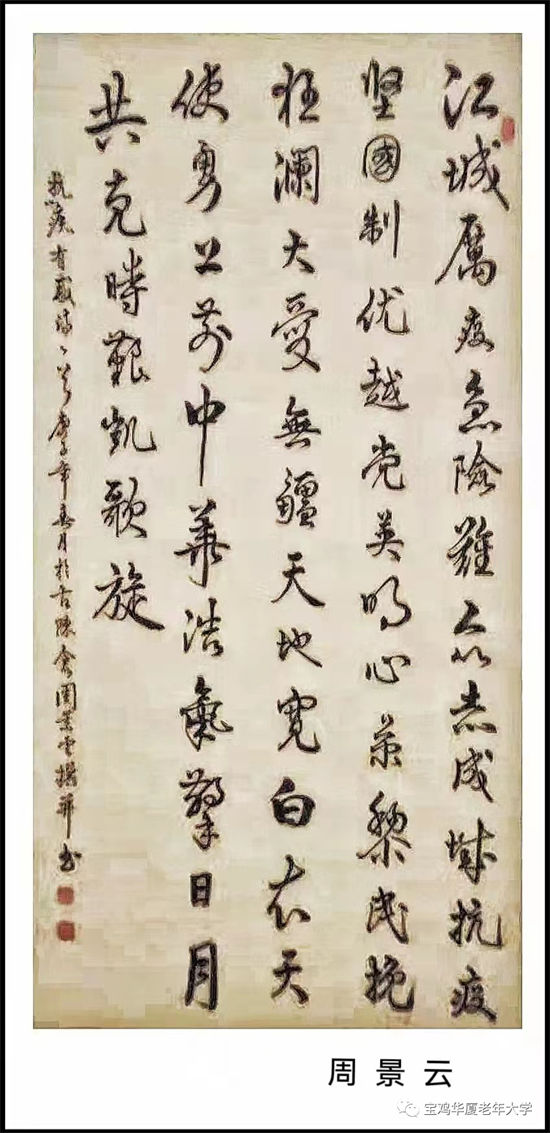 江城厲疫急險難众志成城抗疫
坚國制优越党英明心系黎民挽
狂澜大愛無疆天地宽白衣天
使勇上前中華浩氣擎日月
共克時艱凱歌旋
抗疫有感詩一首庚子年春月於古陳倉周景雲撰并书
周景云
宝鸡华厦老年大学